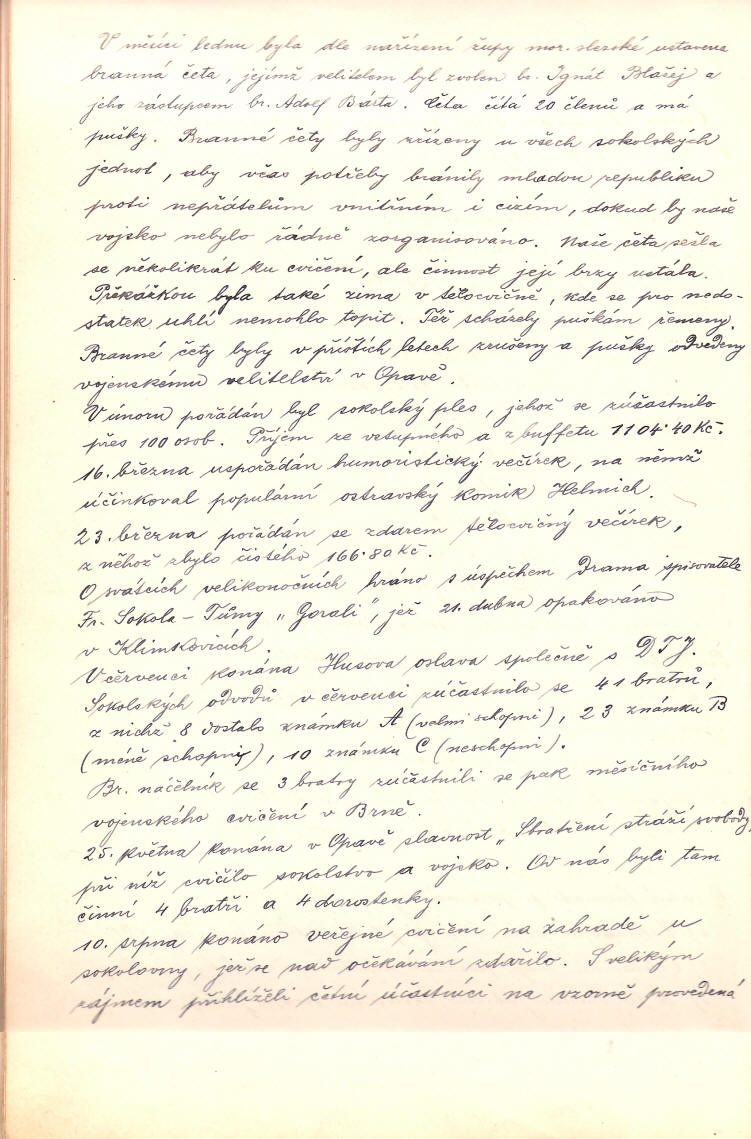 V měsíci lednu byla dle nařízení župy mor. slezské ustavena
branná četa, jejímž velitelem byl zvolen br. Ignát Blažej a
jeho zástupcem br. Adolf Bárta. Četa čítá 20 členů a má
pušky. Branné čety byly zřízeny u všech sokolských
jednot, aby včas potřeby bránily mladou republiku
proti nepřátelům vnitřním i cizím, dokud by naše
vojsko nebylo řádně zorganisováno. Naše četa sešla
se několikrát ku cvičení, ale činnost její brzy ustála.
Překážkou byla také zima v tělocvičně, kde se pro nedo-
statek uhlí nemohlo topit. Též scházely puškám řemeny.
Branné čety byly v příštích letech zrušeny a pušky odvedeny
vojenskému velitelství v Opavě.
V únoru pořádán byl sokolský ples, jehož se zúčastnilo
přes 100 osob. Příjem ze vstupného a z buffetu 1104·40 Kč.
16. března uspořádán humoristický večírek, na němž
účinkoval populární ostravský komik Helmich.
23. března pořádán se zdarem tělocvičný večírek,
z něhož zbylo čistého 166·80 Kč.
O svátcích velikonočních hráno s úspěchem Drama spisovatele
Fr. Sokola - Tůmy „Gorali", jež 21. dubna opakováno
v Klimkovicích.
V červenci konána Husova oslava společně s DTJ.
Sokolských odvodů v červenci zúčastnilo se 41 bratrů,
z nichž 8 dostalo známku A (velmi schopni), 23 známku B
(méně schopni), 10 známku C (neschopni).
Br. náčelník se 3 bratry zúčastnili se pak měsíčního
vojenského cvičení v Brně.
25. května konána v Opavě slavnost „Sbratření stráží svobody,
při níž cvičilo sokolstvo a vojsko. Od nás byli tam
činní 4 bratři a 4 dorostenky.
10. srpna konáno veřejné cvičení na zahradě u
sokolovny, jež se nad očekávání zdařilo. S velikým
zájmem přihlíželi četní účastníci na vzorně provedená